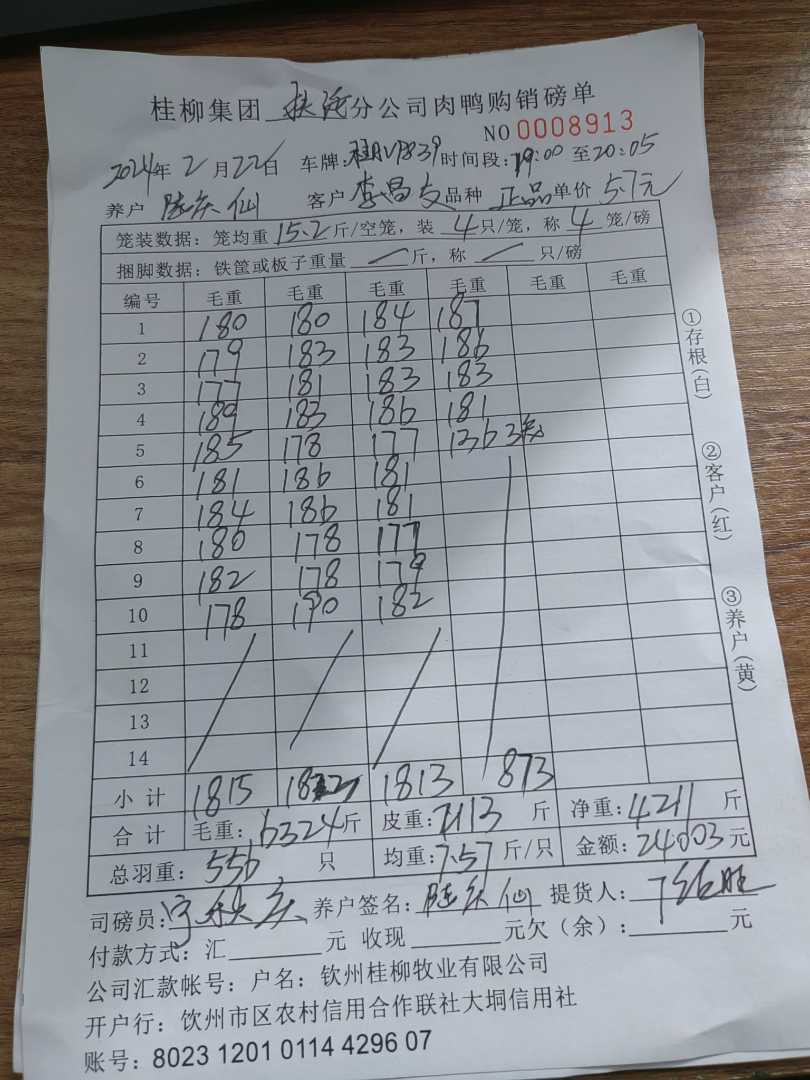 桂柳集团 分公司肉鸭购销磅单
NO 0008913
2024年2月22日 车牌: 时间段:19:00至20:05
养户 陆庆仙 客户 李昌友 品种 正品 单价 5.7元
笼装数据:笼均重15.2斤/空笼,装4只/笼,称4笼/磅
捆脚数据:铁筐或板子重量 — 斤,称 — 只/磅
编号 毛重 毛重 毛重 毛重 毛重 毛重
1 180 180 184 187
2 179 183 183 186
3 177 181 183 183
4 189 183 186 181
5 185 178 177 136 3笼
6 181 186 181
7 184 186 181
8 180 178 177
9 182 178 179
10 178 190 182
11
12
13
14
小计 1815 1813 873
合计 毛重:6324斤 皮重:2113斤 净重:4211斤
总羽重:556只 均重:7.57斤/只 金额:24003元
司磅员: 养户签名:陆庆仙 提货人:
付款方式:汇 元 收现 元欠(余): 元
公司汇款帐号:户名:钦州桂柳牧业有限公司
开户行:饮州市区农村信用合作联社大垌信用社
账号:8023 1201 0114 4296 07
①存根(白)
②客户(红)
③养户(黄)